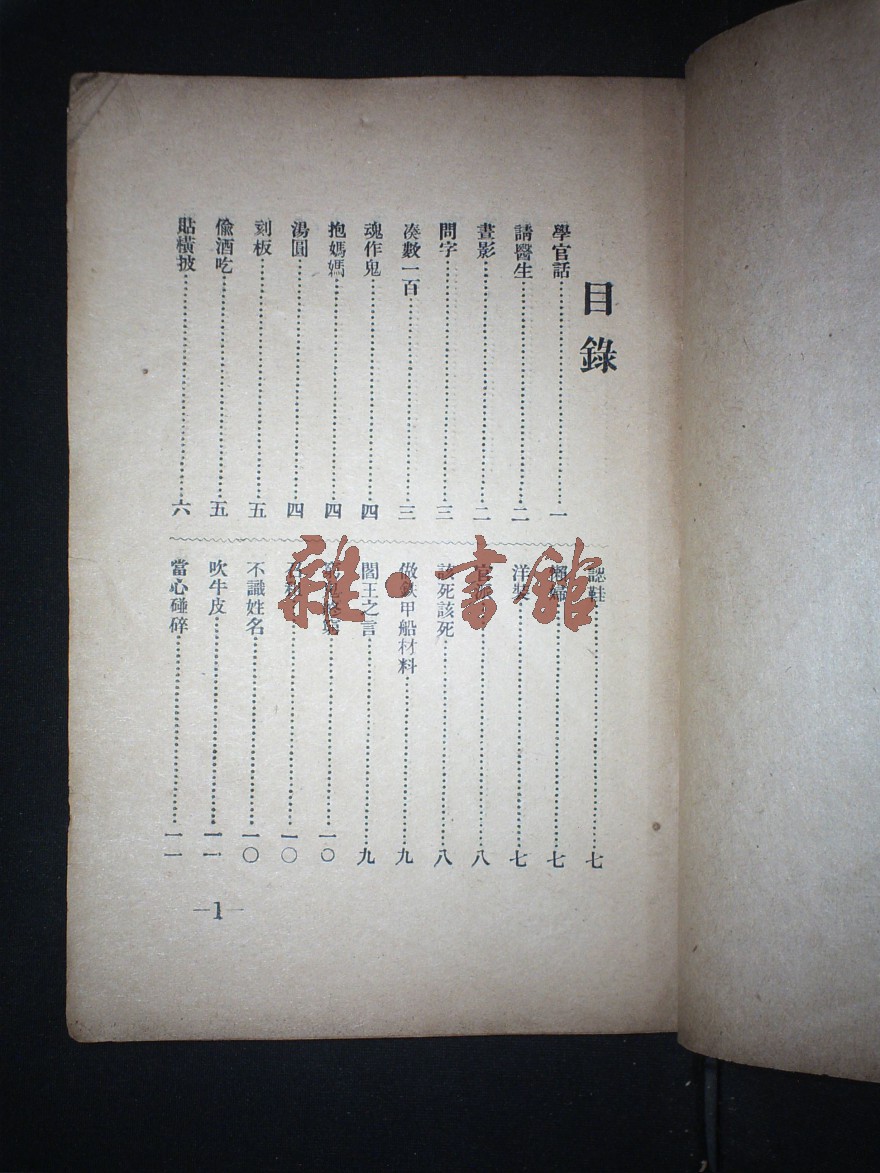 目錄
學官話……一
請醫生……二
畫影……二
問字……三
湊數一百……三
魂作鬼……四
抱媽媽……四
湯圓……四
刻板……五
偷酒吃……五
貼橫披……六
認鞋……七
懶婦……七
洋裝……七
官……八
該死該死……八
做鉄甲船材料……九
閻王之言……九
……一〇
……一〇
不識姓名……一〇
吹牛皮……一一
當心碰碎……一一
—1—
雜·書館